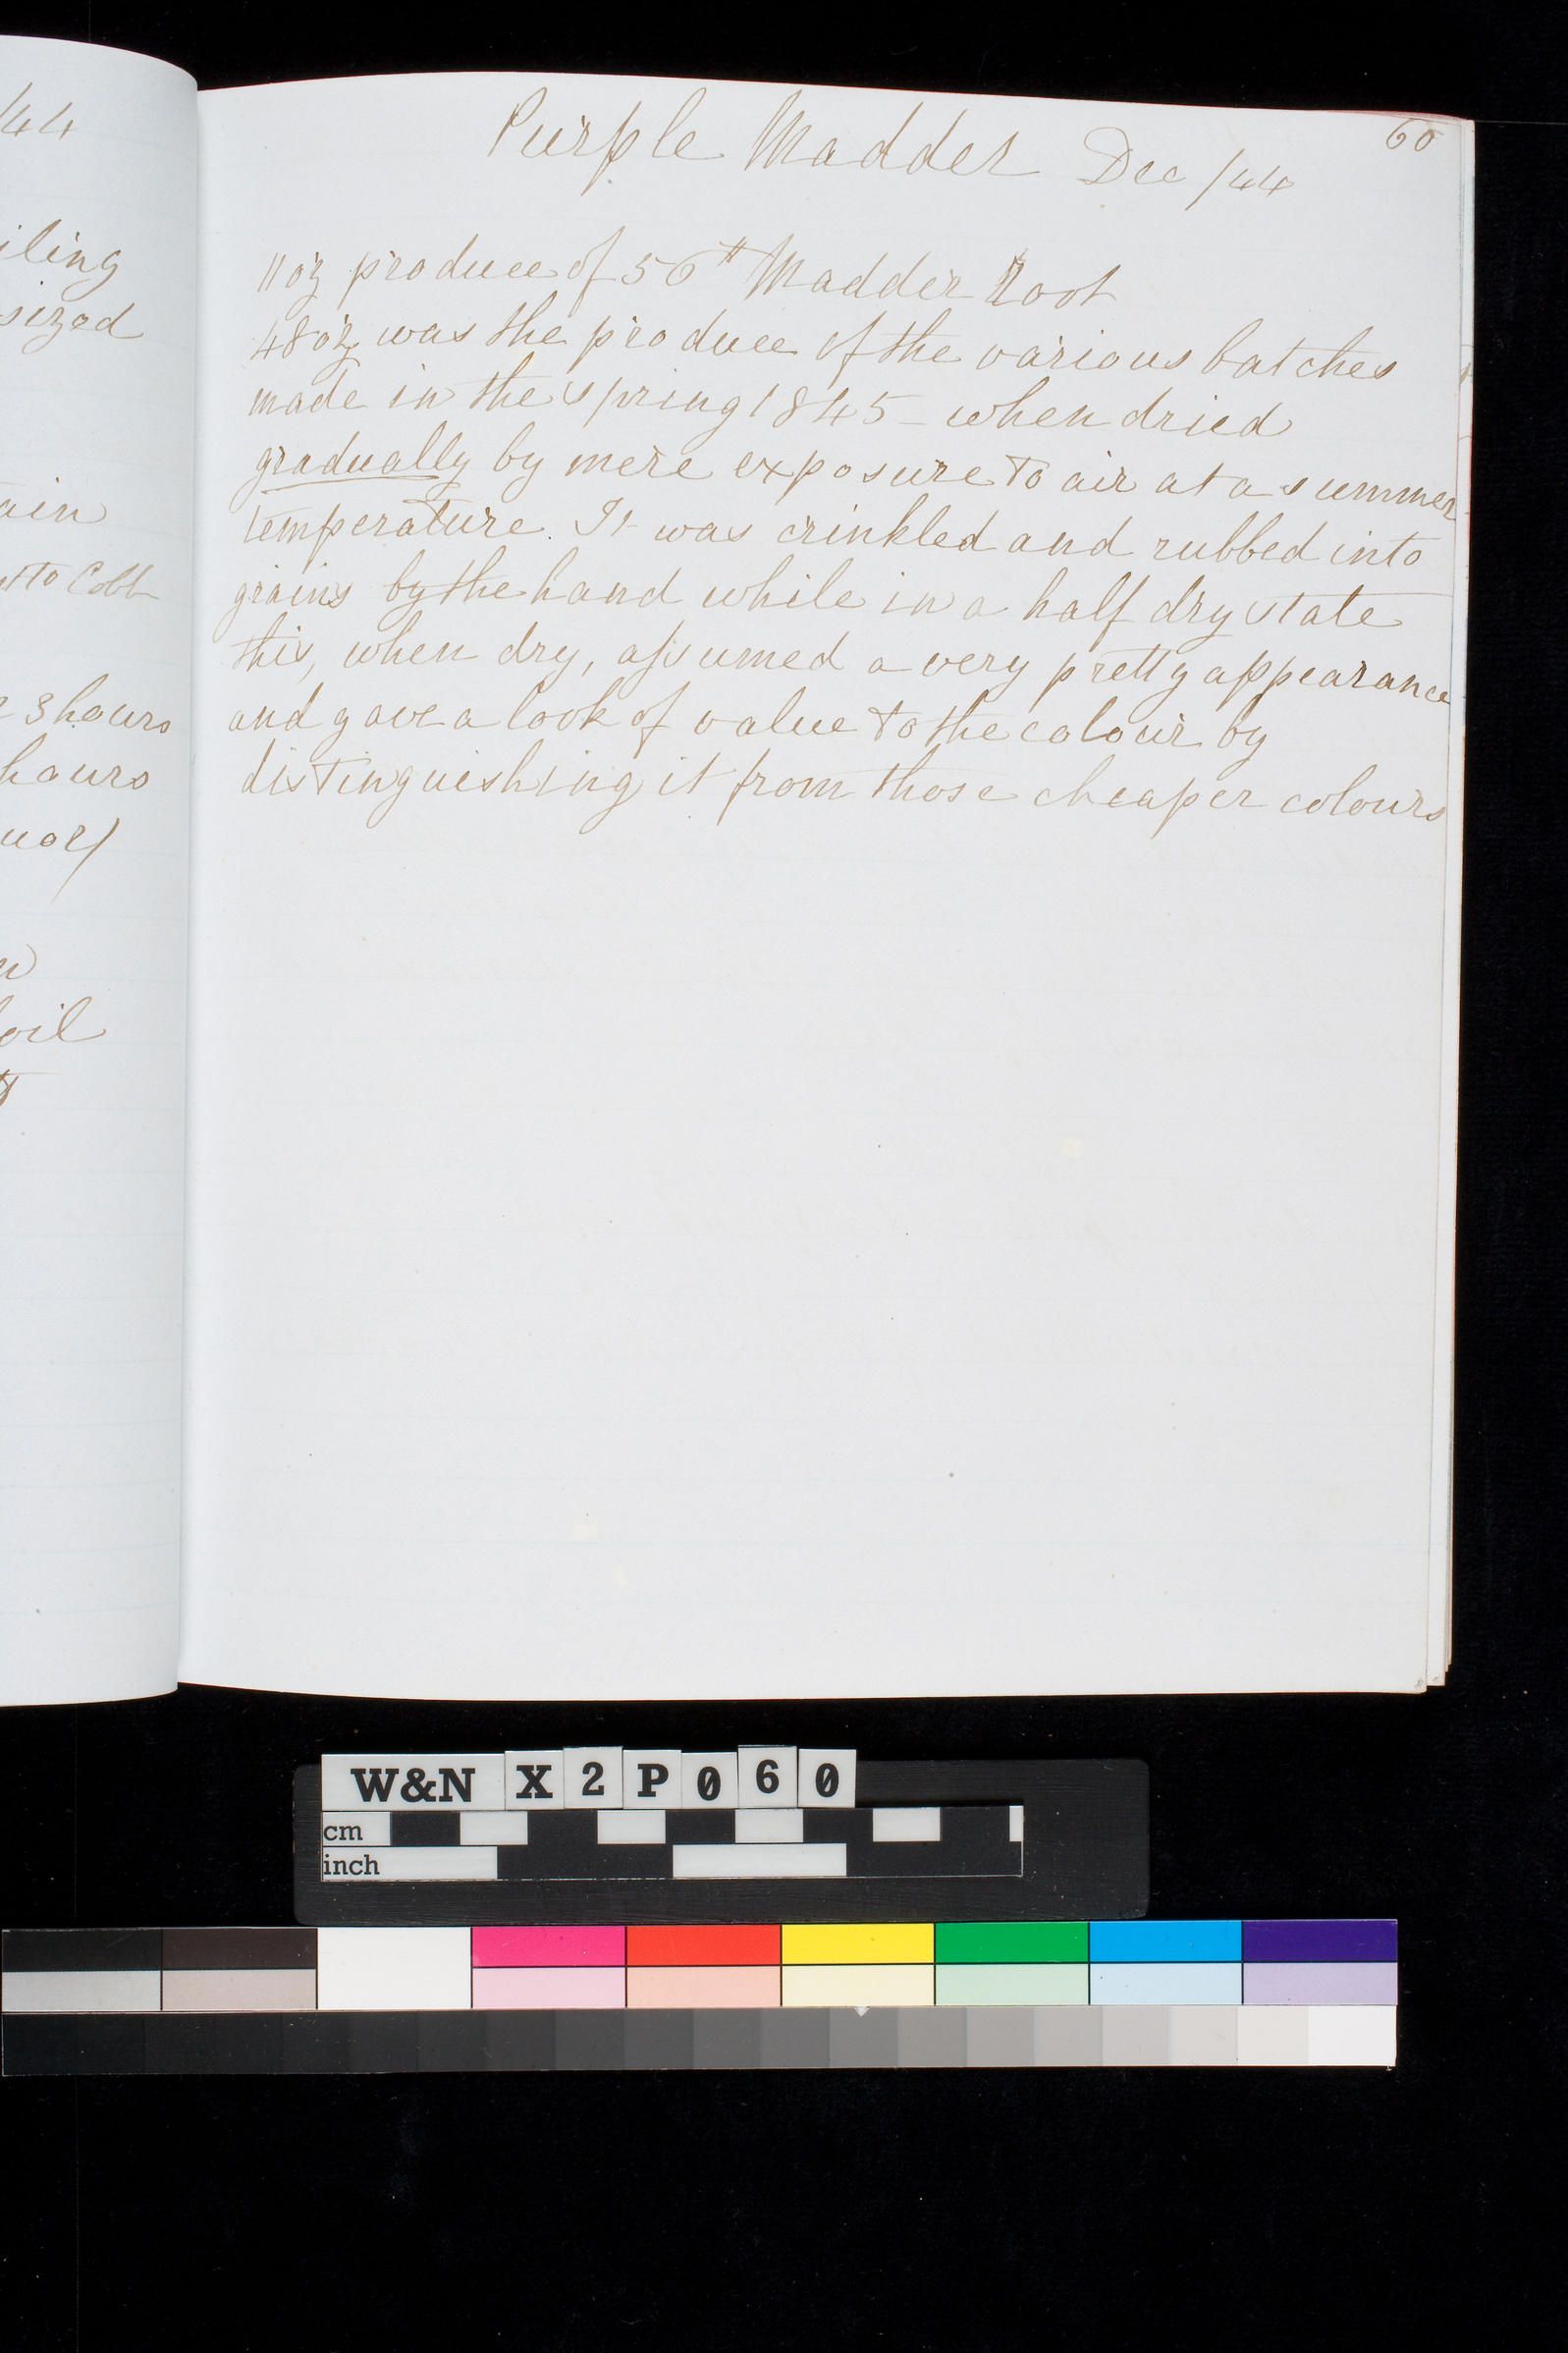 /44
iling
sized
ain
to Cobb
3 hours
hours
oil
Purple Madder Dec /44
60
11 oz produce of 56 lb Madder Root
48 oz was the produce of the various batches
made in the spring 1845 – when dried
gradually by mere exposure to air at a summer
temperature. It was crinkled and rubbed into
grains by the hand while in a half dry state
this, when dry, assumed a very pretty appearance
and gave a look of value to the colour by
distinguishing it from those cheaper colours
W&N X2P060
cm
inch